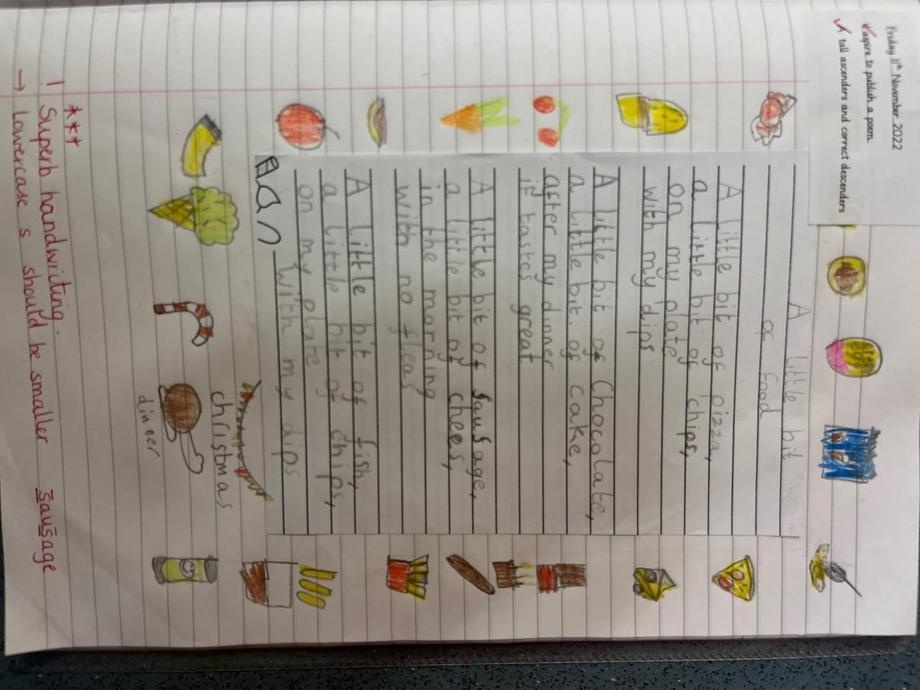 Friday 11th November 2022
aspire to publish a poem.
tall ascenders and correct descenders
A little bit
of food
A little bit of pizza,
a little bit of chips,
on my plate
with my dips
A little bit of Chocolate,
a little bit. of cake,
after my dinner
it tastes great
A little bit of sausage,
a little bit of chees,
in the morning
with no fleas
A little bit of fish,
a little bit of chips,
on my plate
with my dips
christmas
dinner
***
! Superb handwriting.
→ lowercase s should be smaller sausage